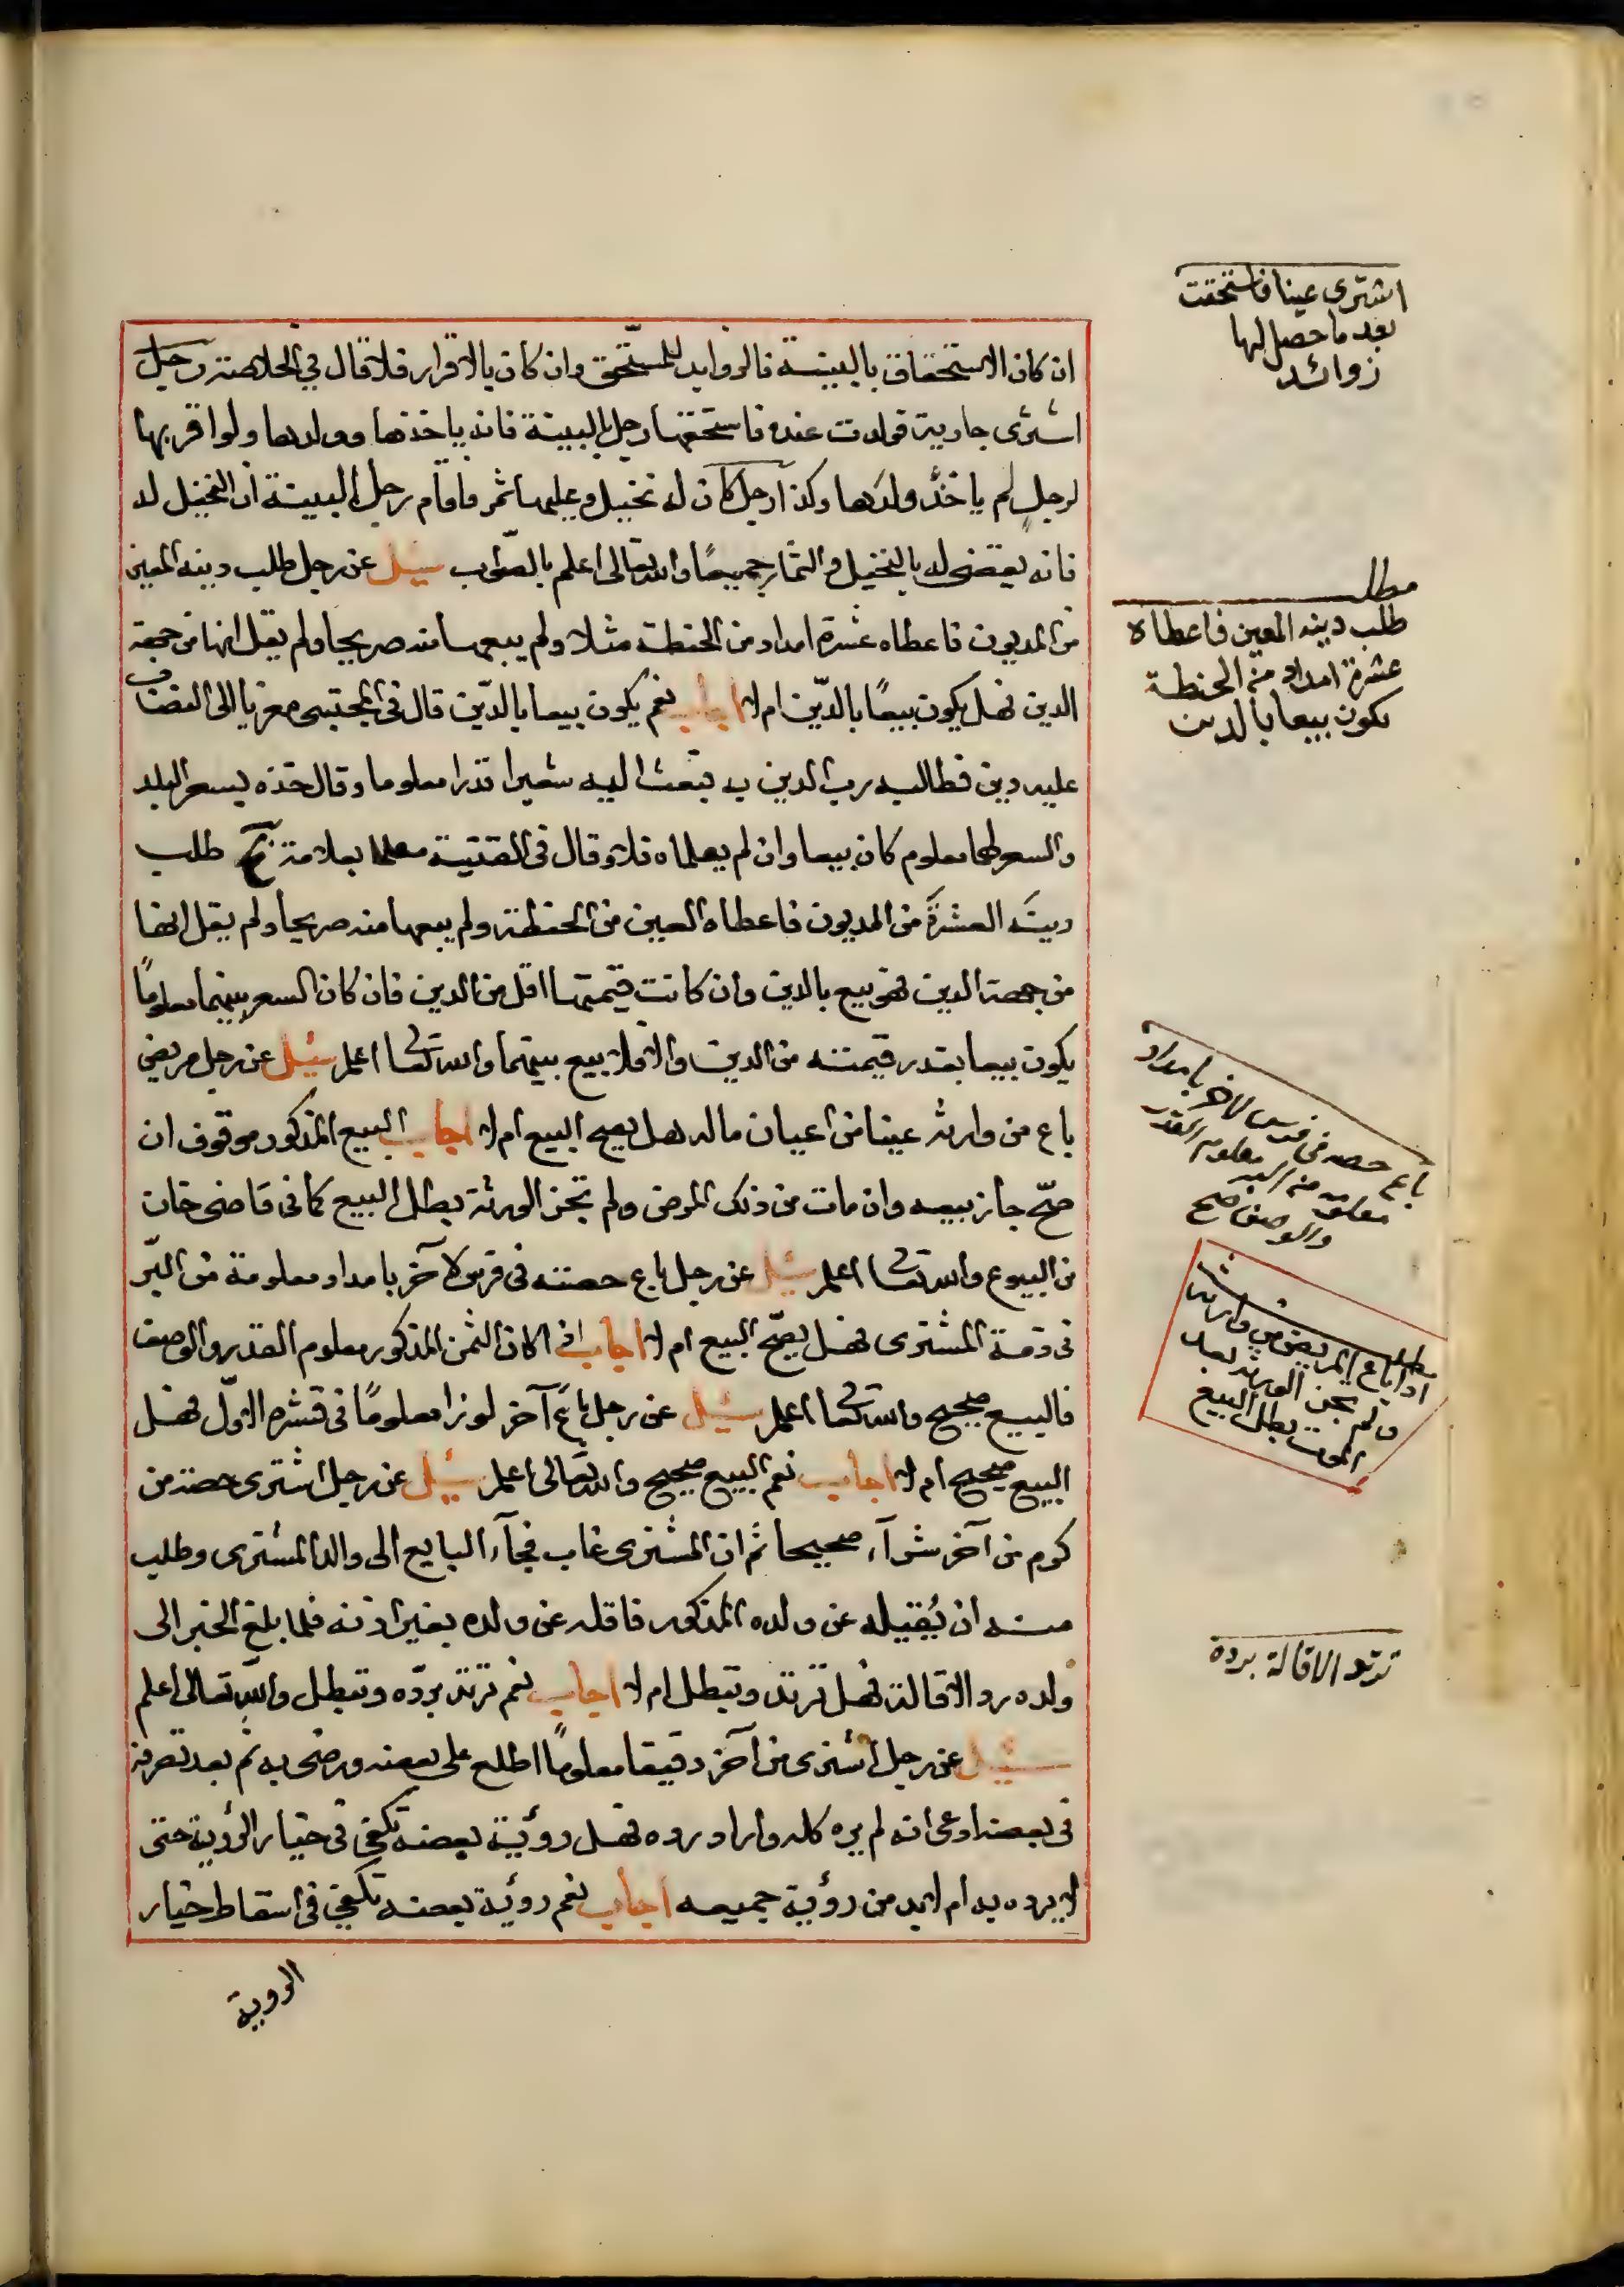 ان كان الاستحقاق بالبينة فالزوايد للمستحق وان كان بالاقرار فلا قال في الخلاصة رجل
اشترى جارية فولدت عنده فاستحقها رجل بالبينة فانه ياخذها وولدها ولو اقر بها
لرجل لم ياخذ ولدها وكذا رجل كان له نخيل وعليها ثمر فاقام رجل البينة ان النخيل له
فانه يقضى له بالنخيل والثمار جميعًا والله تعالى اعلم بالصواب سئل عن رجل طلب دينه المعين
من المديون فاعطاه عشرة امداد من الحنطة مثلا ولم يبعها منه صريحا ولم يقل انها من جهة
الدين فهل يكون بيعًا بالدّين ام لا اجاب نعم يكون بيعا بالدّين قال في المجتبى معزيا الى
عليه دين فطالبه رب الدين به فبعث اليه شعيرا قدرا معلوما وقال خذه بسعر البلد
والسعر لهما معلوم كان بيعا وان لم يعلماه فلا وقال في القنية معلما بعلامة طلب
دينه العشرة من المديون فاعطاه العين من الحنطة ولم يبعها منه صريحا ولم يقل انها
من جهة الدين فهو بيع بالدين وان كانت قيمتها اقل من الدين فان كان السعر بينهما معلومًا
يكون بيعا بقدر قيمته من الدين والا فلا بيع بينهما والله تعا اعلم سئل عن رجل مريض
باع من وارثه عينا من اعيان ماله هل يصح البيع ام لا اجاب البيع المذكور موقوف ان
صحّ جاز بيعه وان مات من ذلك المرض ولم تجز الورثة بطل البيع كما في قاضي خان
من البيوع والله تعا اعلم سئل عن رجل باع حصته في فرس لاخر بامداد معلومة من البرّ
في ذمة المشترى فهل يصحّ البيع ام لا اجاب اذا كان الثمن المذكور معلوم القدر والوصف
فالبيع صحيح والله تعا اعلم سئل عن رجل باع آخر لوزا معلومًا في قشره الاوّل فهل
البيع صحيح ام لا اجاب نعم البيع صحيح والله تعالى اعلم سئل عن رجل اشترى حصة من
كرم من آخر شرآء صحيحا ثم ان المشترى غاب فجآء البايع الى والد المشترى وطلب
منه ان يُقيله عن ولده المذكور فاقله عن ولده بغير اذنه فلما بلغ الخبر الى
ولده رد الاقالة فهل ترتد وتبطل ام لا اجاب نعم ترتد بردّه وتبطل والله تعالى اعلم
سئل عن رجل اشترى من آخر دقيقا معلومًا اطلع على بعضه ورضى به ثم بعد تصرفه
في بعضه ادعى انه لم يره كله واراد رده فهل رؤية بعضه تكفي في خيار الرؤية حتى
لا يرده به ام لا بد من رؤية جميعه اجاب نعم رؤية بعضه تكفي في اسقاط خيار
الروية
اشترى عينا فاستحقت
بعد ما حصل لها
زوائد
مطلب
طلب دينه المعين فاعطاه
عشرة امداد من الحنطة
يكون بيعا بالدين
باع حصه في فرس لاخر بامداد
معلومة من البر معلوم القدر
والوصف صح
مطلب
اذا باع المريض من وارثه
ولم تجز الورثة بعد
الموت بطل البيع
ترتد الاقالة برده